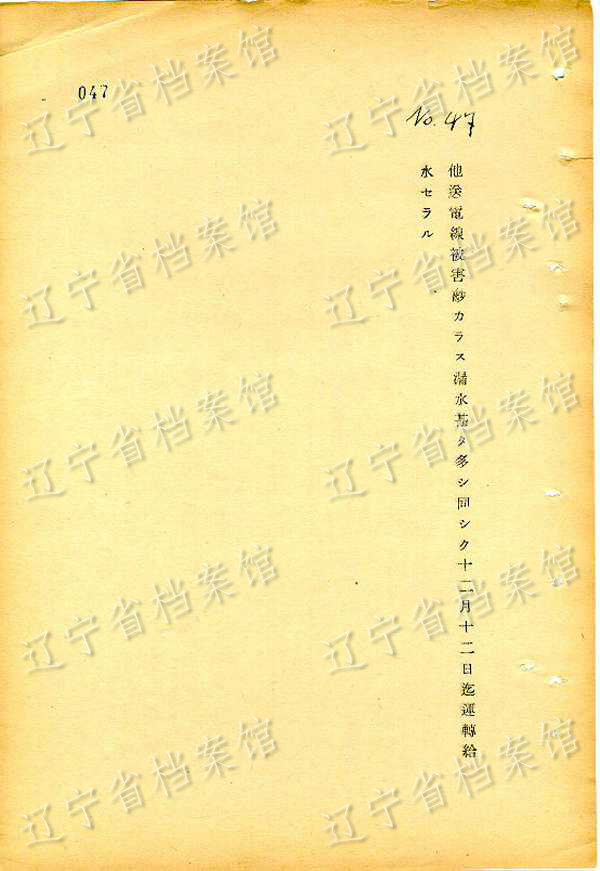 047
No. 47
他送電線被害尠カラス漏水甚タ多シ同シク十二月十二日迄運轉給
水セラル
辽宁省档案馆
辽宁省档案馆
辽宁省档案馆
辽宁省档案馆
辽宁省档案馆
辽宁省档案馆
辽宁省档案馆
辽宁省档案馆
辽宁省档案馆
辽宁省档案馆